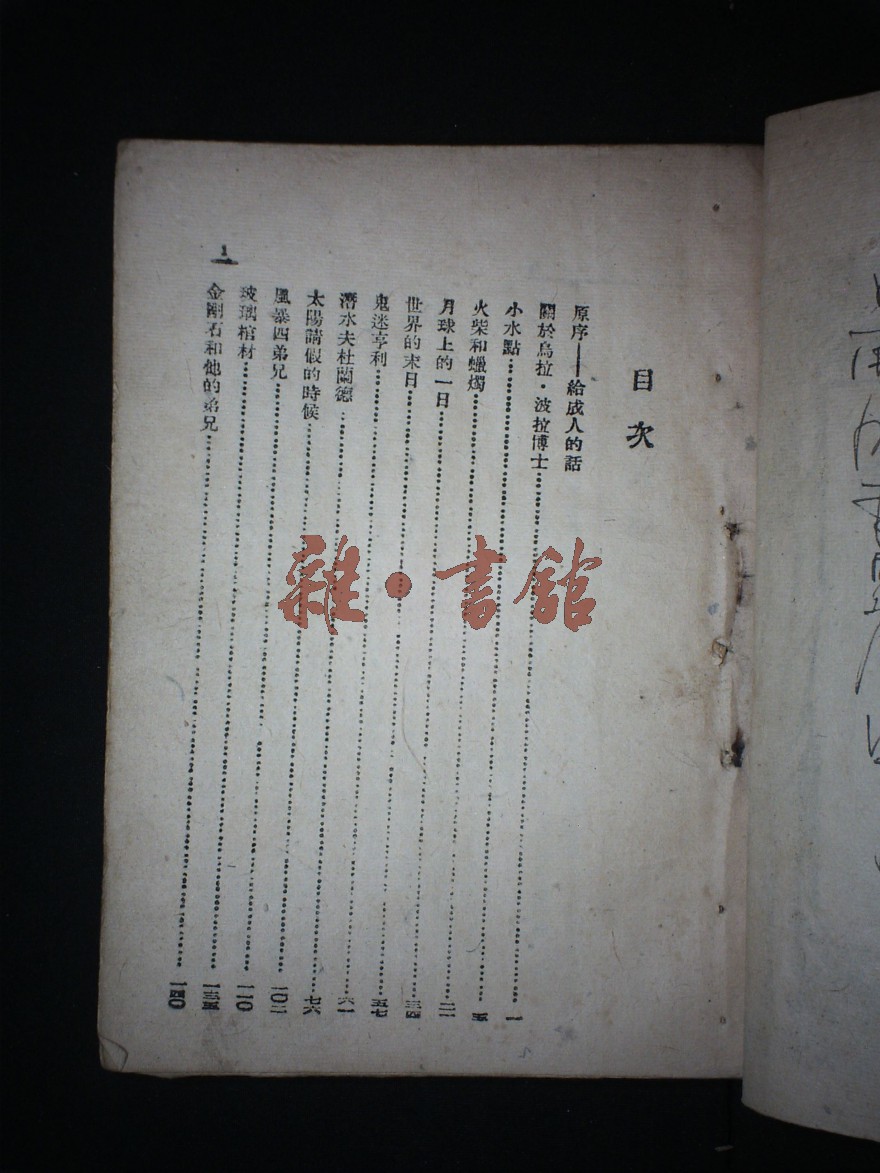 目次
原序——給成人的話
關於烏拉·波拉博士……一
小水點……五
火柴和蠟燭……二二
月球上的一日……三四
世界的末日……五七
鬼迷亨利……六一
潛水夫杜蘭德……七六
太陽請假的時候……一〇二
風暴四弟兄……一一〇
玻璃棺材……一三五
金剛石和他的弟兄……一四〇
1
雜·書館